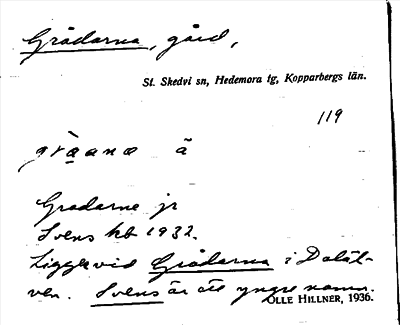 Grådarna, gård,
St. Skedvi sn, Hedemora tg, Kopparbergs län.
119
Gradarne jr
Svens hb 1932.
Ligger vid Grådarna i Daläl-
ven. Svens är ett yngre namn.
OLLE HILLNER, 1936.